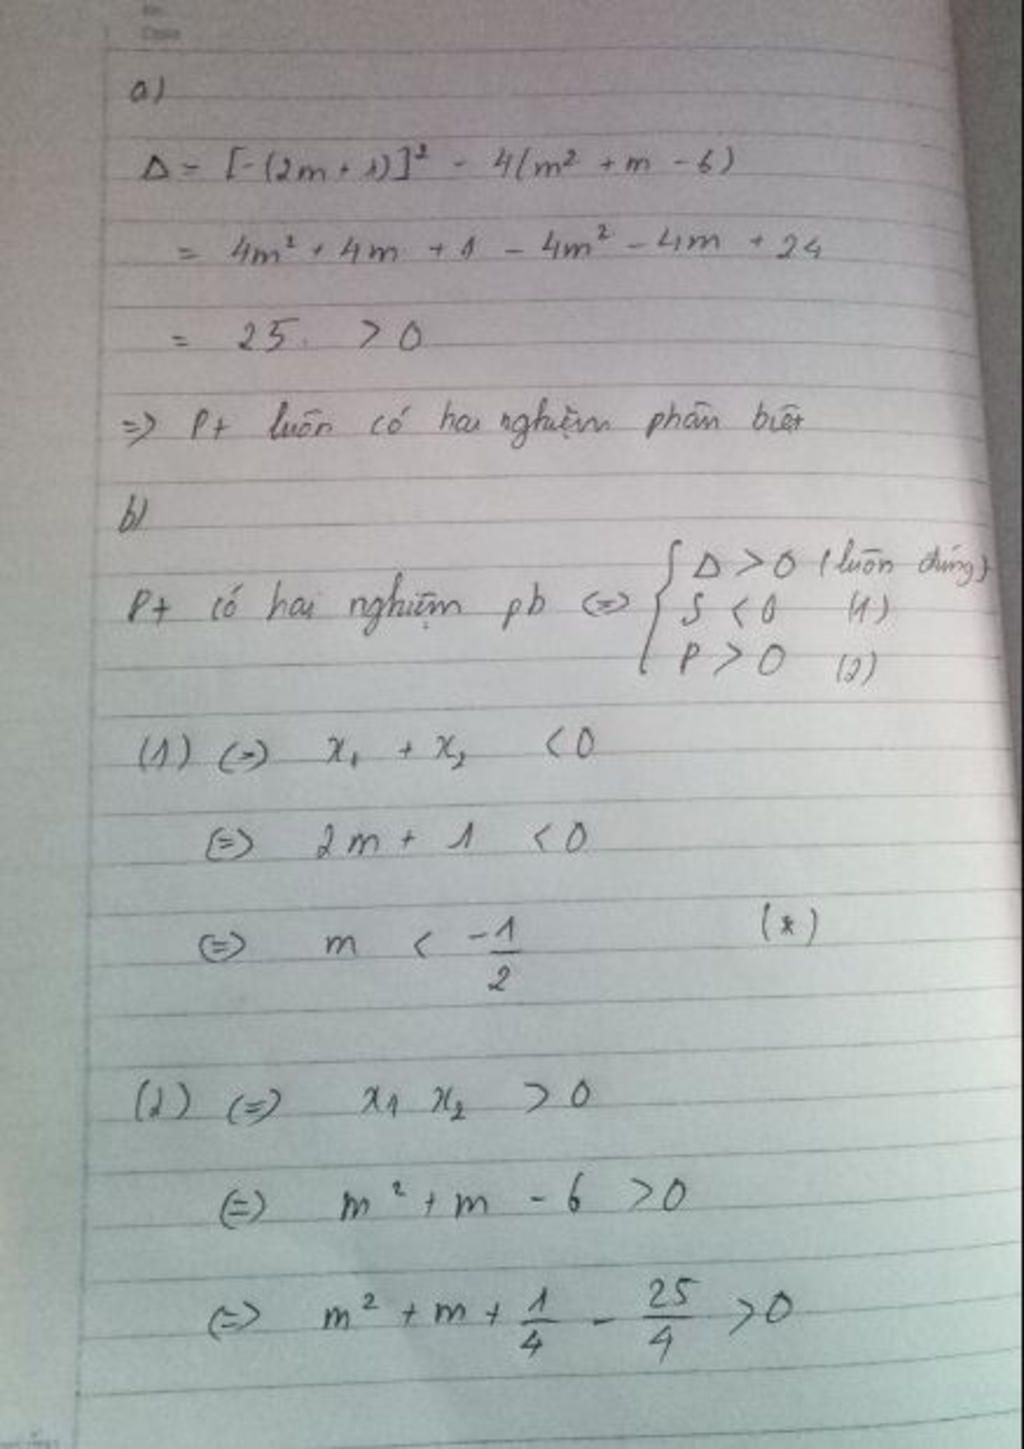 a)
Δ = [-(2m + 1)]² - 4(m² + m - 6)
= 4m² + 4m + 1 - 4m² - 4m + 24
= 25 > 0
=> Pt luôn có hai nghiệm phân biệt
b)
Pt có hai nghiệm pb (=) { Δ > 0 (luôn đúng)
S < 0 (1)
P > 0 (2)
(1) (=) x₁ + x₂ < 0
(=) 2m + 1 < 0
(=) m < -1/2 (*)
(2) (=) x₁ x₂ > 0
(=) m² + m - 6 > 0
(=) m² + m + 1/4 - 25/4 > 0